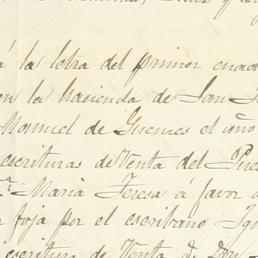 á la letra del primer cuad
en la hacienda de San F
Manuel de Guemes el año
escrituras de Venta del Pue
María Teresa á favor d
foja por el escribano Ign
escritura de Venta D. Don